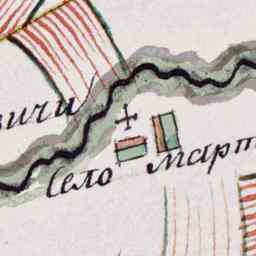 вичи
Село Март